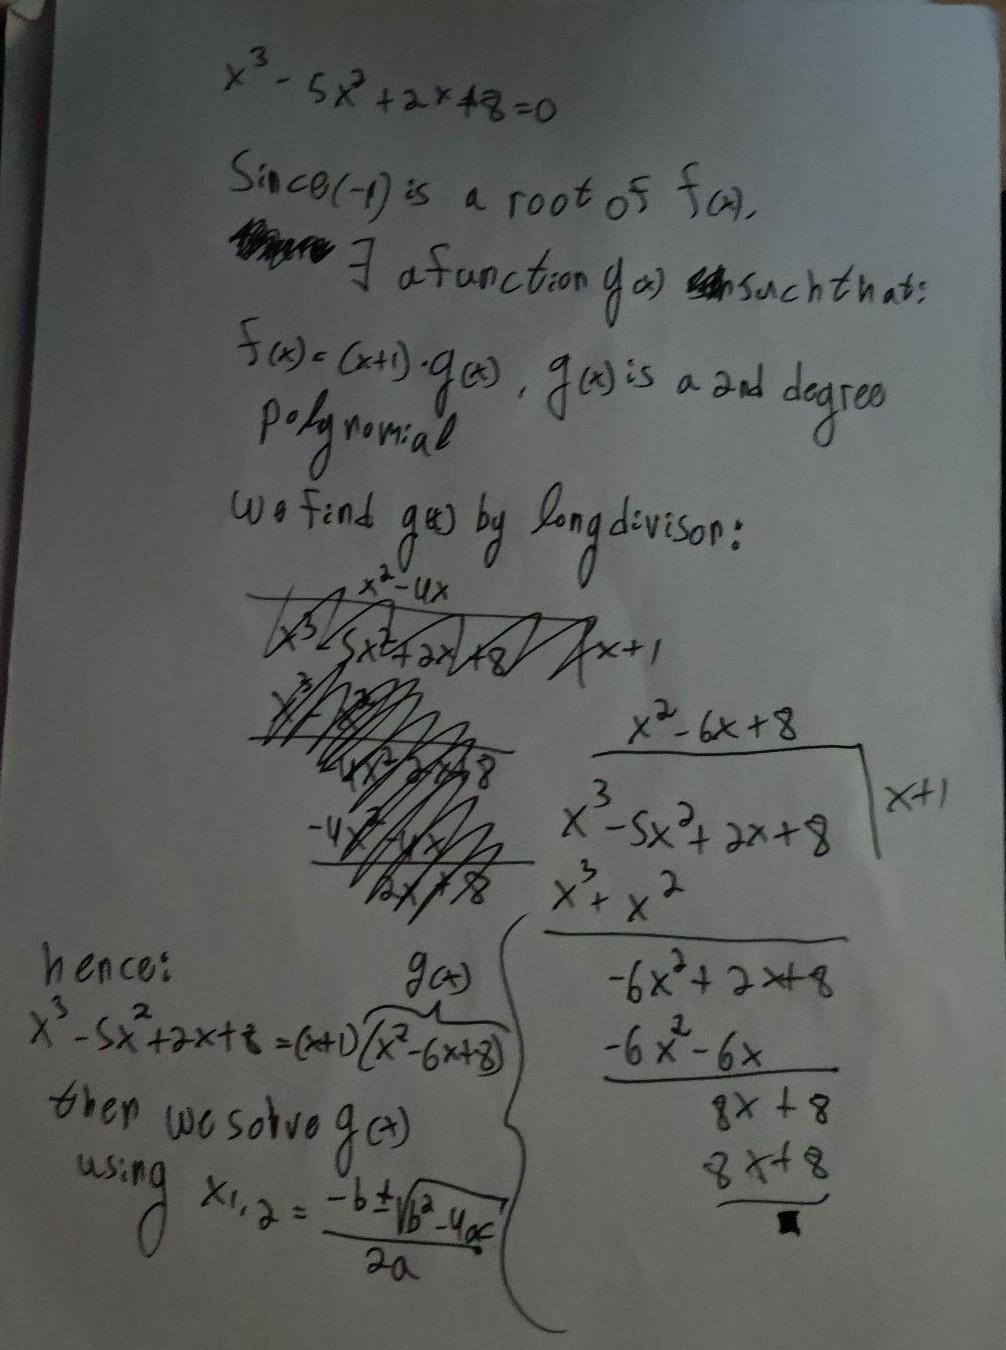 x³ - 5x² + 2x + 8 = 0
Since (-1) is a root of f(x),
∃ a function g(x) such that:
f(x) = (x+1)·g(x), g(x) is a 2nd degree
polynomial
We find g(x) by long divison:
x² - 4x
x³ - 5x² + 2x + 8 x+1
-4x² - 4x
2x + 8
x² - 6x + 8
x³ - 5x² + 2x + 8 x+1
x³ + x²
-6x² + 2x + 8
-6x² - 6x
8x + 8
8x + 8
hence:
g(x)
x³ - 5x² + 2x + 8 = (x+1)(x² - 6x + 8)
then we solve g(x)
using x₁,₂ = (-b ± √(b² - 4ac)) / 2a